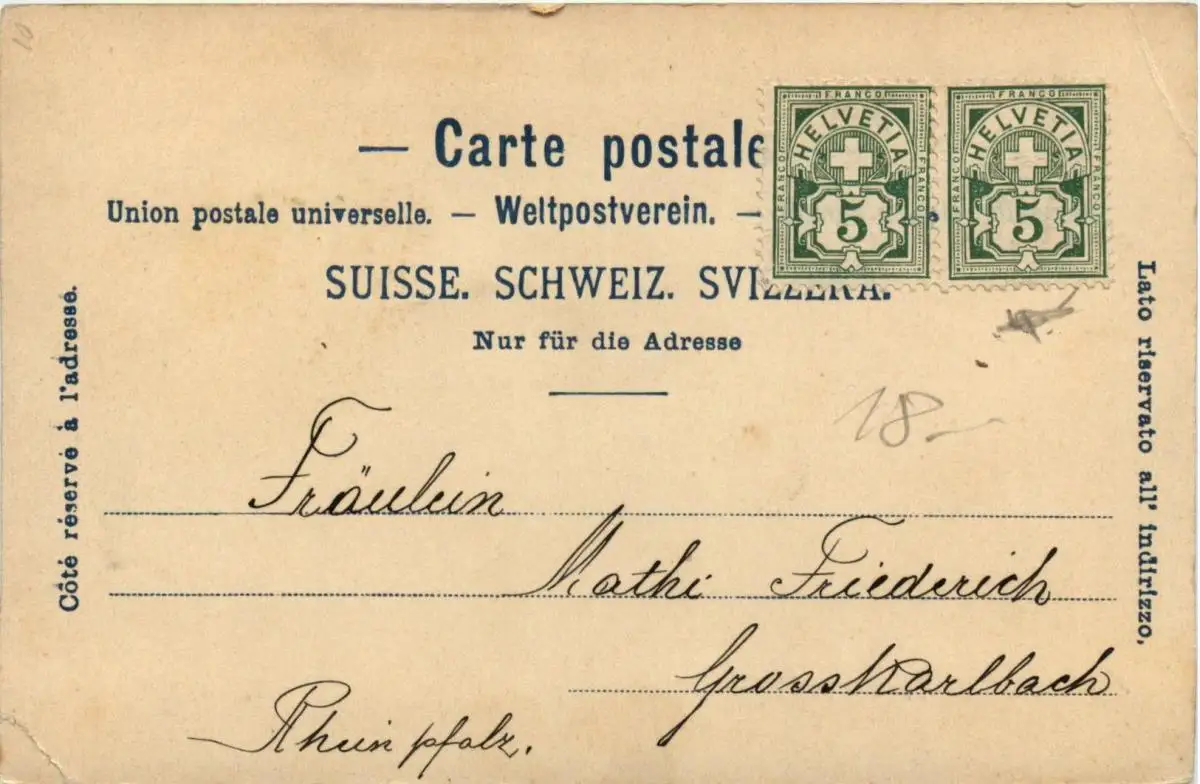 10
— Carte postale
Union postale universelle. — Weltpostverein. —
SUISSE. SCHWEIZ. SVIZZERA.
Nur für die Adresse
FRANCO
FRANCO
FRANCO
HELVETIA
5
FRANCO
FRANCO
FRANCO
HELVETIA
5
Côté réservé à l'adresse.
Lato riservato all' indirizzo.
18.—
Fräulein
Mathi Friederich
Grosskarlbach
Rheinpfalz.